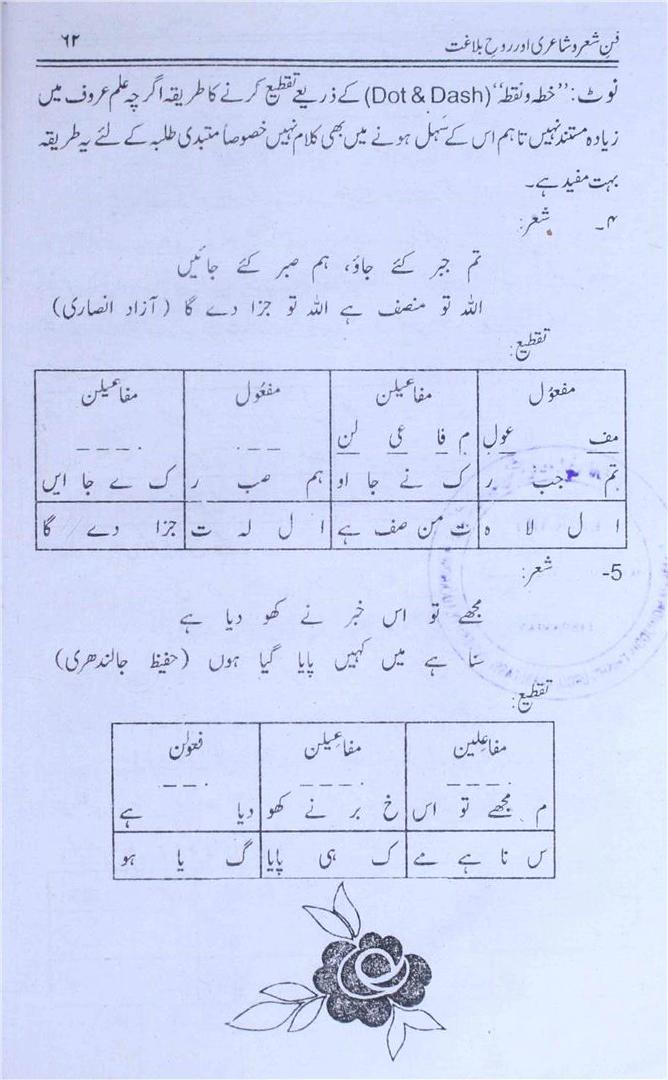 فنِ شعر و شاعری اور روحِ بلاغت ۶۲
نوٹ: ”خطہ و نقطہ“ (Dot & Dash) کے ذریعے تقطیع کرنے کا طریقہ اگرچہ علم عروف میں
زیادہ مستند نہیں تاہم اس کے سہل ہونے میں بھی کلام نہیں خصوصاً مبتدی طلبہ کے لئے یہ طریقہ
بہت مفید ہے۔
۴۔ شعر:
تم جبر کئے جاؤ، ہم صبر کئے جائیں
اللہ تو منصف ہے اللہ تو جزا دے گا (آزاد انصاری)
تقطیع:
مفعوُل مفاعیلن مفعُول مفاعیلن
مف عول م فا عی لن . _ _ . _ _ _
تم جبـ ر ک نے جا او ہم صب ر ک ے جا ایں
ا ل لا ہ ت من صف ہے ا ل لہ ت جزا دے گا
5- شعر:
مجھے تو اس خبر نے کھو دیا ہے
سنا ہے میں کہیں پایا گیا ہوں (حفیظ جالندھری)
تقطیع:
مفاعلین مفاعیلن فعولن
. _ _ _ . _ _ _ . _ _
م مجھے تو اس خ بر نے کھو دیا ہے
س نا ہے مے ک ہی پایا گ یا ہو